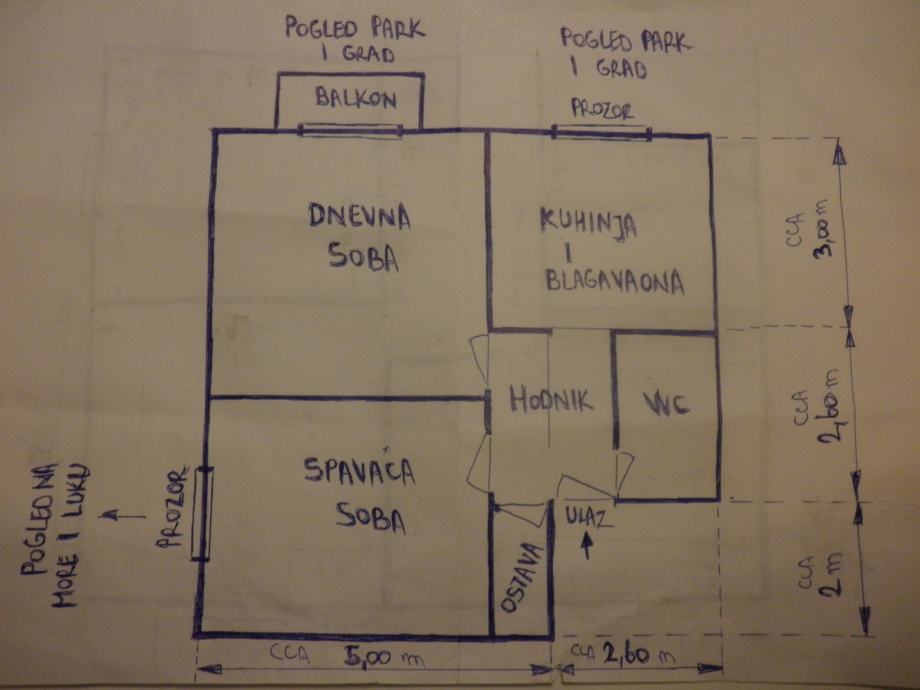 POGLED PARK
I GRAD
POGLED PARK
I GRAD
BALKON
PROZOR
DNEVNA
SOBA
KUHINJA
I
BLAGAVAONA
CCA
3,00 m
HODNIK
WC
CCA
2,60 m
SPAVAĆA
SOBA
PROZOR
POGLED NA
MORE I LUKU
OSTAVA
ULAZ
CCA
2 m
CCA 5,00 m
CCA 2,60 m